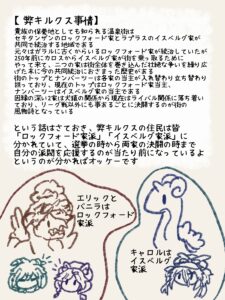 【 弊キルクス事情】
貴族の保養地としても知られる温泉街は
セキタンザンのロックフォード家とラプラスのイスベルグ家が
共同で統治する地域である
元々はガラルに古くからいるロックフォード家が統治していたが
250年前にカロスからイスベルグ家が街を乗っ取るために
やって来て、二つの家は街全体を巻き込んだ壮絶な争いを繰り広
げた末に今の共同統治におちまった歴史がある
街のトップとナンバーツーは各家の当主が入れ替わり立ち替わり
担っており、現在のトップはロックフォード家当主、
ナンバーツーはイスベルグ家の当主である
因縁の深い2家は犬猿の関係から現在はライバル関係に落ち着い
ており、リーグ戦以外にも事あるごとに決闘するのが街の
風物詩となっている
という話はさておき、弊キルクスの住民は皆
「ロックフォード家派」「イスベルグ家派」に
分かれていて、選挙の時から両家の決闘の時まで
自分の派閥を応援するのが当たり前になっているよ
というのが分かればオッケーです
エリックと
バニラは
ロックフォード
家派
キャロルは
イスベルグ
家派